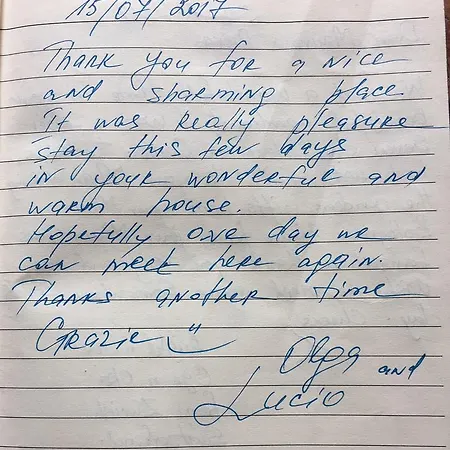 15/07/2017
Thank you for a nice
and sharming place.
It was really pleasure
stay this few days
in your wonderful and
warm house.
Hopefully one day we
can meet here again.
Thanks another time
Grazie
Olga and
Lucio